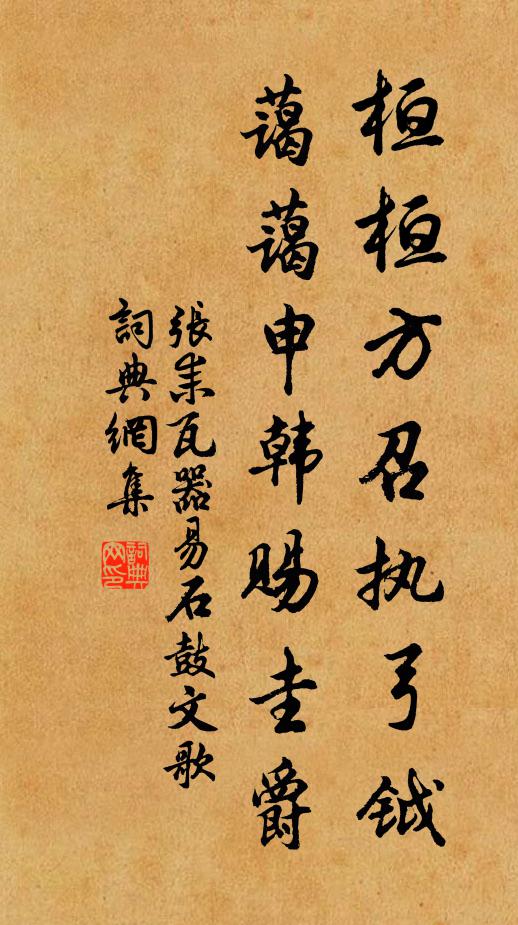 桓桓方召执弓鉞
藹藹申韩赐圭爵
張耒瓦器易石鼓文歌
詞典網集
詞典网印